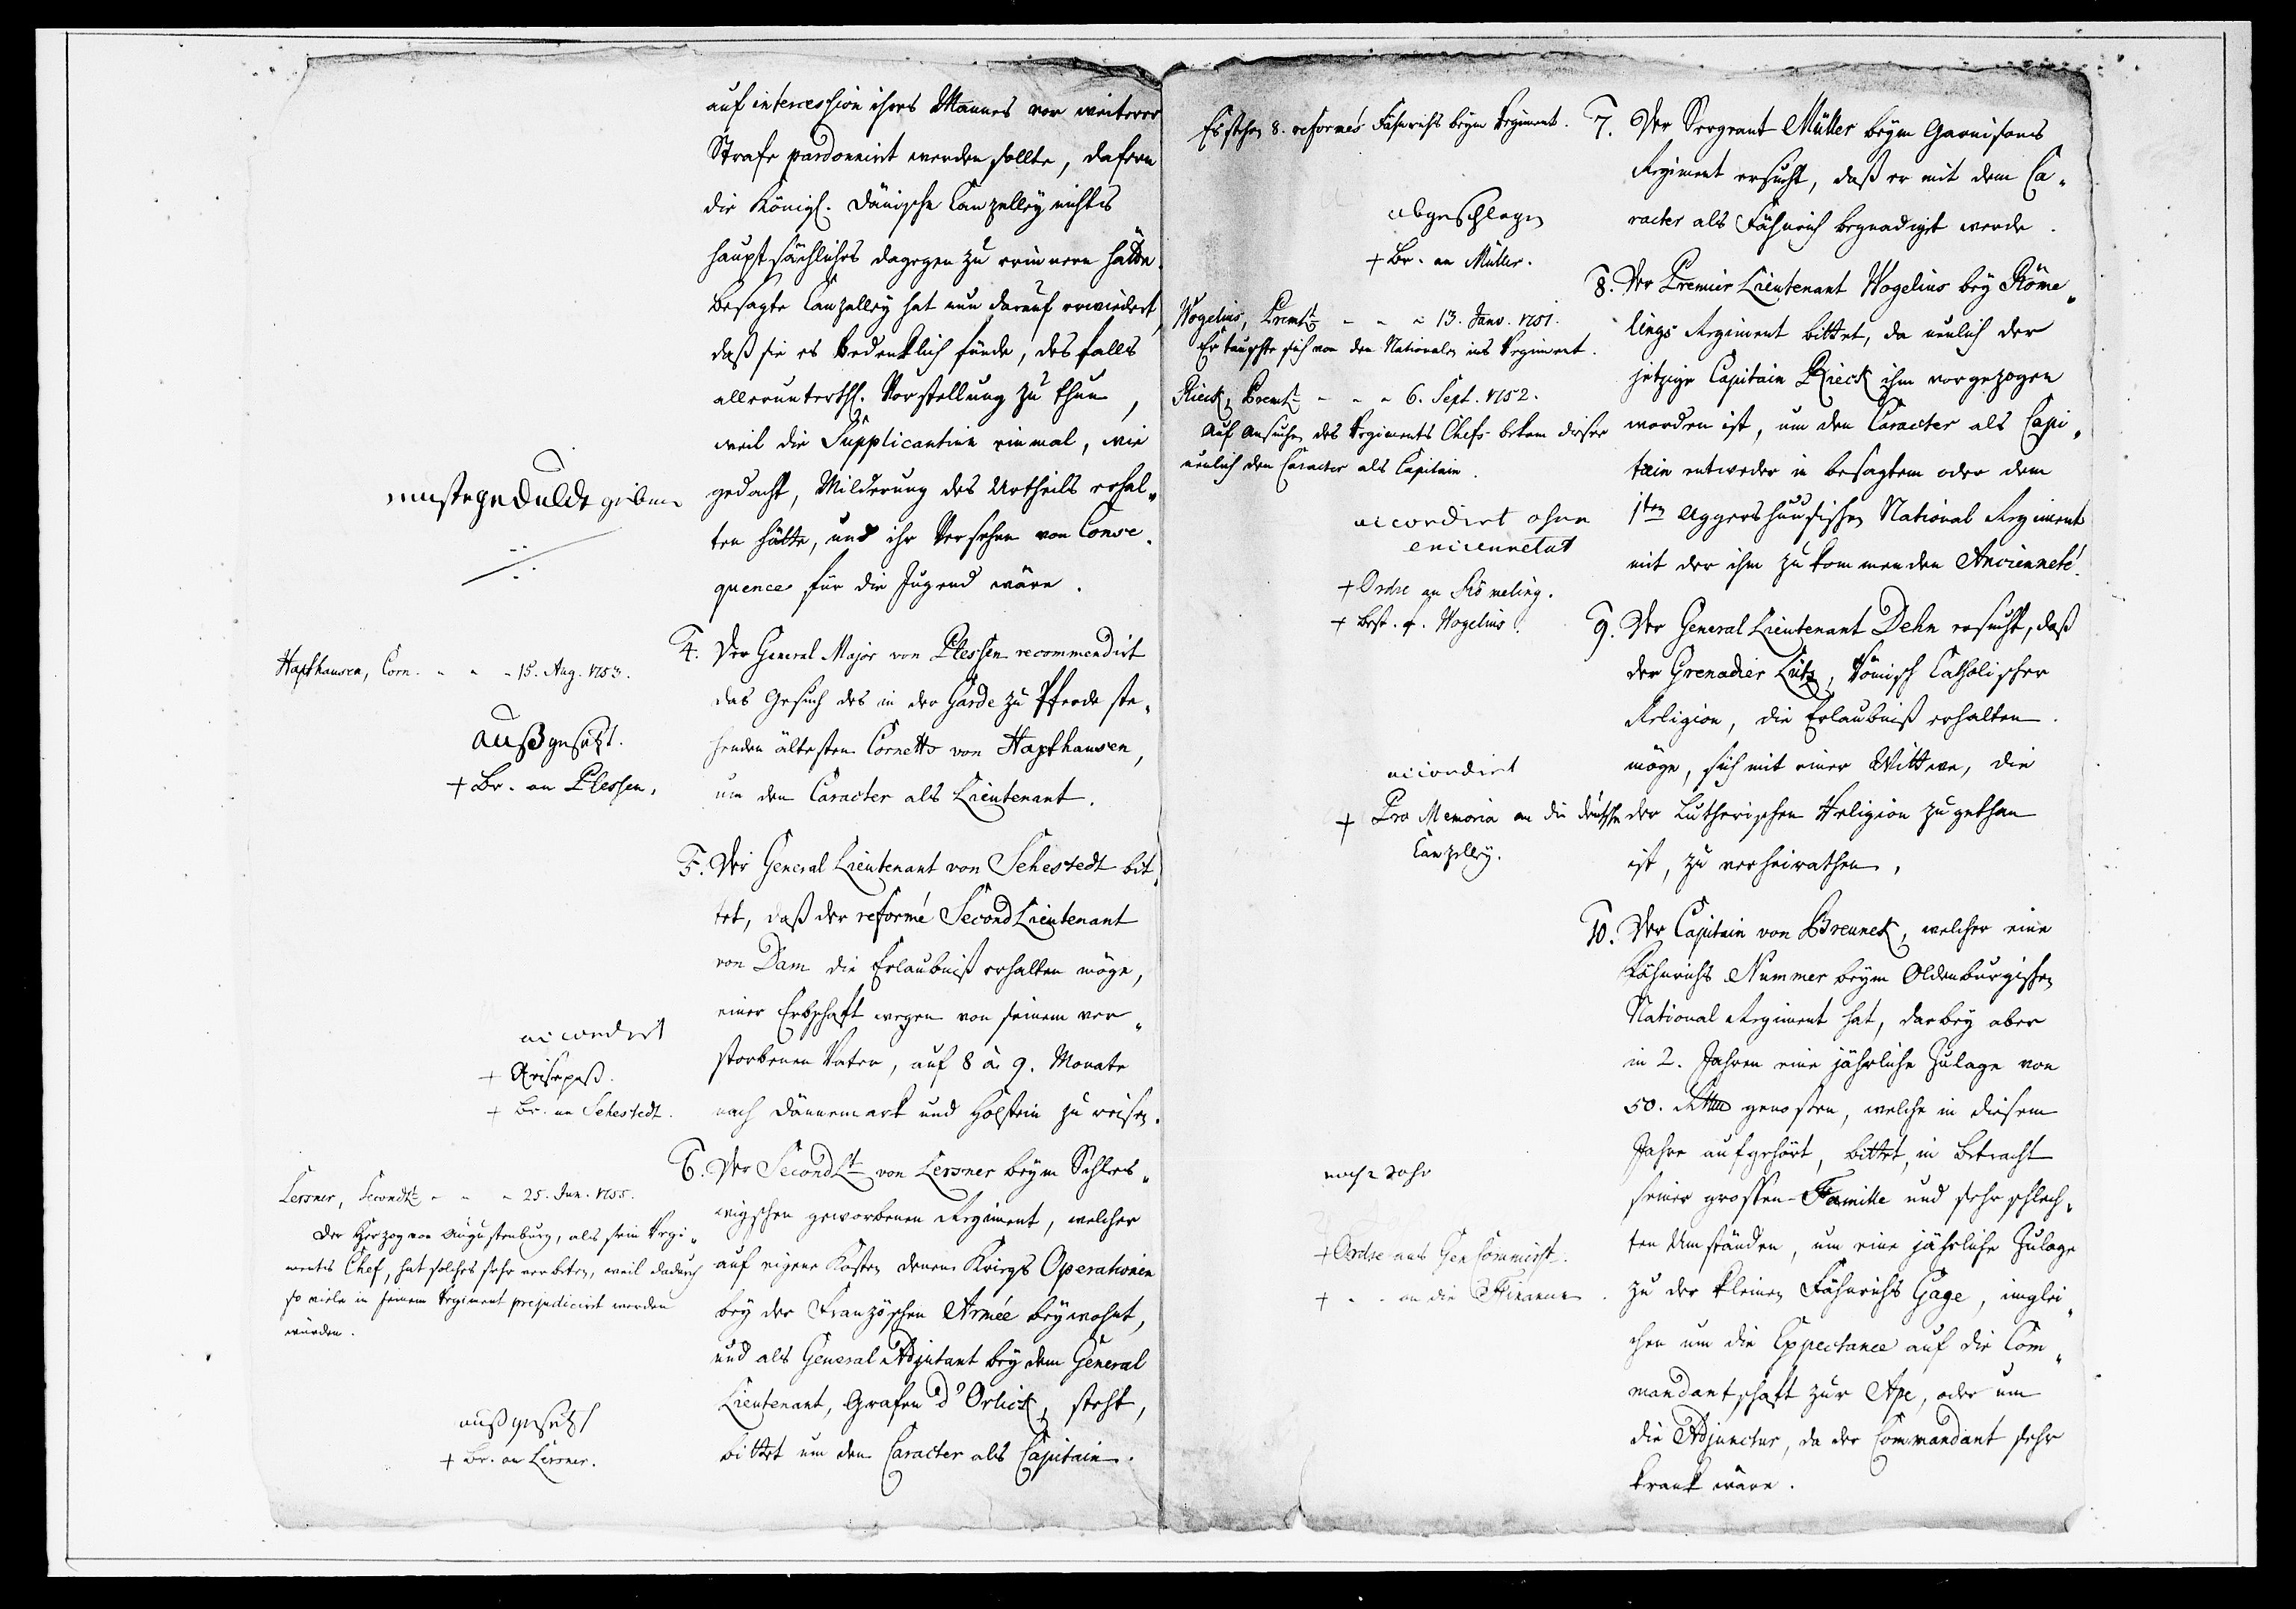 auf intercession ihres Mannes von weiterer
Strafe pardonnirt werden sollte, dafern
die Königl. Dänische Canzelley nichts
hauptsächliches dagegen zu erinnern hätte.
Besagte Canzelley hat nun darauf erwiedert,
daß sie es bedenklich fünde, desfalls
allerunterthl. Vorstellung zu thun,
weil die Supplicantinn einmal, wie
gedacht, Milderung des Urtheils erhal„
ten hätte, und ihr Versehen von Conse„
quence für die Jugend wäre.
muste gedulde geben
Hapfhausen, Corn. „ „ „ 15. Aug. 1753.
4. Der General Major von Plessen recommendirt
das Gesuch des in der Garde zu Pferde ste„
henden ältesten Cornetts von Hapfhausen,
um den Caracter als Lieutenant.
außgesetzt.
+ Br. an Plessen.
5. Der General Lieutenant von Sehestedt bit„
tet, daß der reformé Second Lieutenant
von Dam die Erlaubniß erhalten möge,
einer Erbschaft wegen von seinem ver„
storbenen Vater, auf 8 à 9. Monate
nach Dännemark und Holstein zu reisen.
accordirt
+ Reisepaß.
+ Br. an Sehestedt.
6. Der Second Lt. von Lersner beym Schles„
wigschen geworbenen Regiment, welcher
auf eigene Kosten denen Kriegs Operationen
bey der Französchen Armée beywohnt,
und als General Adjutant bey dem General
Lieutenant, Grafen d'Orlick, steht,
bittet um den Caracter als Capitain.
Lersner, Secondlt. „ „ „ 25. Jun. 1755.
Der Herzog von Augustenburg, als sein Regi„
ments Chef, hat solches sehr verbeten, weil dadurch
so viele in seinem Regiment prejudicirt werden
würden.
außgesetzt
+ Br. an Lersner.
Es stehen 8. reformés Fähnrichs beym Regiment.
7. Der Sergeant Müller beym Garnisons
Regiment ersucht, daß er mit dem Ca„
racter als Fähnrich begnadiget werde.
abgeschlagen
+ Br. an Müller.
8. Der Premier Lieutenant Wogelius bey Röme„
lings Regiment bittet, da neulich der
jetzige Capitain Rieck ihm vorgezogen
worden ist, um den Caracter als Capi„
tain entweder in besagtem oder dem
1sten Aggershuusischen National Regiment
mit der ihm zukommenden Ancienneté.
Wogelius, Premlt. „ „ „ 13. Janv. 1751.
Er tauschte sich von den Nationalen ins Regiment.
Rieck, Premlt. „ „ „ 6. Sept. 1752.
Auf Ansuchen des Regiments Chefs bekam dieser
neulich den Caracter als Capitain.
accordirt ohne
enciennetät
+ Ordre an Römeling.
+ Best. f. Wogelius.
9. Der General Lieutenant Dehn ersucht, daß
der Grenadier Lütz, Römisch Catholischer
Religion, die Erlaubniß erhalten
möge, sich mit einer Wittwe, die
der Lutherischen Religion zugethan
ist, zu verheirathen.
accordirt
+ Pro Memoria an die deutsche
Canzelley.
10. Der Capitain von Breuneck, welcher eine
Fähnrichs Nummer beym Oldenburgischen
National Regiment hat, darbey aber
in 2. Jahren eine jährliche Zulage von
50. Rthlr. genossen, welche in diesem
Jahre aufgehört, bittet, in Betracht
seiner grossen Familie und sehr schlech„
ten Umständen, um eine jährliche Zulage
zu der kleinen Fähnrichs Gage, imglei„
chen um die Expectance auf die Com„
mandantschaft zur Ape, oder um
die Adjunctur, da der Commandant sehr
krank wäre.
noch 2 Jahr
+ Ordre ans Gen Commisst.
+ „ „ an die Financen.